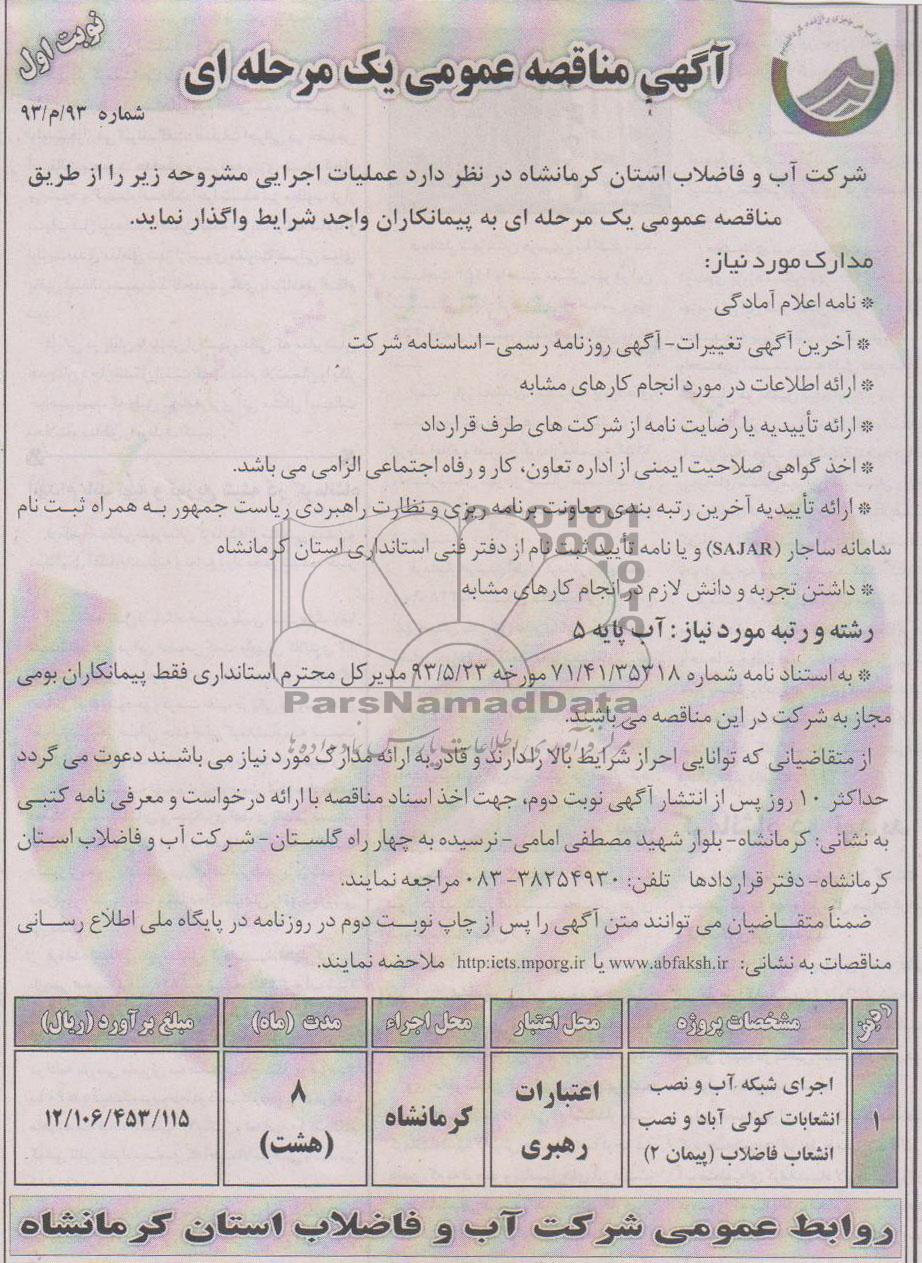 نوبت اول
آگهی مناقصه عمومی یک مرحله ای
شماره ۹۳/م/۹۳
شرکت آب و فاضلاب استان کرمانشاه در نظر دارد عملیات اجرایی مشروحه زیر را از طریق
مناقصه عمومی یک مرحله ای به پیمانکاران واجد شرایط واگذار نماید.
مدارک مورد نیاز:
* نامه اعلام آمادگی
* آخرین آگهی تغییرات- آگهی روزنامه رسمی- اساسنامه شرکت
* ارائه اطلاعات در مورد انجام کارهای مشابه
* ارائه تأییدیه یا رضایت نامه از شرکت های طرف قرارداد
* اخذ گواهی صلاحیت ایمنی از اداره تعاون، کار و رفاه اجتماعی الزامی می باشد.
* ارائه تأییدیه آخرین رتبه بندی معاونت برنامه ریزی و نظارت راهبردی ریاست جمهور به همراه ثبت نام
سامانه ساجار (SAJAR) و یا نامه تأیید ثبت نام از دفتر فنی استانداری استان کرمانشاه
* داشتن تجربه و دانش لازم در انجام کارهای مشابه
رشته و رتبه مورد نیاز: آب پایه ۵
* به استناد نامه شماره ۷۱/۴۱/۳۵۳۱۸ مورخه ۹۳/۵/۲۳ مدیرکل محترم استانداری فقط پیمانکاران بومی
مجاز به شرکت در این مناقصه می باشند.
ParsNamadData
از متقاضیانی که توانایی احراز شرایط بالا را دارند و قادر به ارائه مدارک مورد نیاز می باشند دعوت می گردد
حداکثر ۱۰ روز پس از انتشار آگهی نوبت دوم، جهت اخذ اسناد مناقصه با ارائه درخواست و معرفی نامه کتبی
به نشانی: کرمانشاه- بلوار شهید مصطفی امامی- نرسیده به چهار راه گلستان- شرکت آب و فاضلاب استان
کرمانشاه- دفتر قراردادها تلفن: ۳۸۲۵۴۹۳۰- ۰۸۳ مراجعه نمایند.
ضمناً متقاضیان می توانند متن آگهی را پس از چاپ نوبت دوم در روزنامه در پایگاه ملی اطلاع رسانی
مناقصات به نشانی: www.abfaksh.ir یا http:iets.mporg.ir ملاحضه نمایند.
ردیف مشخصات پروژه محل اعتبار محل اجراء مدت (ماه) مبلغ برآورد (ریال)
۱ اجرای شبکه آب و نصب انشعابات کولی آباد و نصب انشعاب فاضلاب (پیمان ۲) اعتبارات رهبری کرمانشاه ۸ (هشت) ۱۲/۱۰۶/۴۵۳/۱۱۵
روابط عمومی شرکت آب و فاضلاب استان کرمانشاه